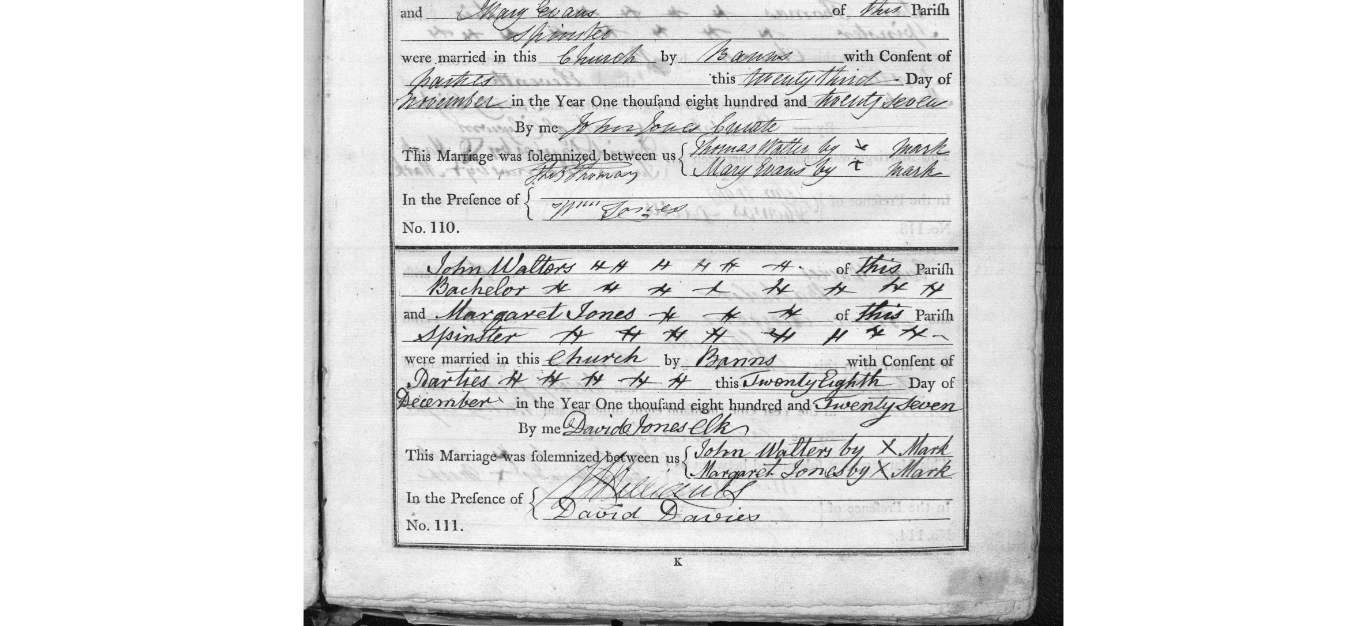 and Mary Evans of this Parish
Spinster
were married in this Church by Banns with Consent of
parties this twenty third Day of
November in the Year One thousand eight hundred and twenty seven
By me John Jones Curate
This Marriage was solemnized between us { Thomas Walter by x mark
Mary Evans by + mark
Thos Thomas
In the Presence of {
Wm Jones
No. 110.
John Walters of this Parish
Bachelor
and Margaret Jones of this Parish
Spinster
were married in this Church by Banns with Consent of
Parties this Twenty Eighth Day of
December in the Year One thousand eight hundred and Twenty seven
By me David Jones Clk
This Marriage was solemnized between us { John Walters by X Mark
Margaret Jones by X Mark
In the Presence of {
David Davies
No. 111.
K